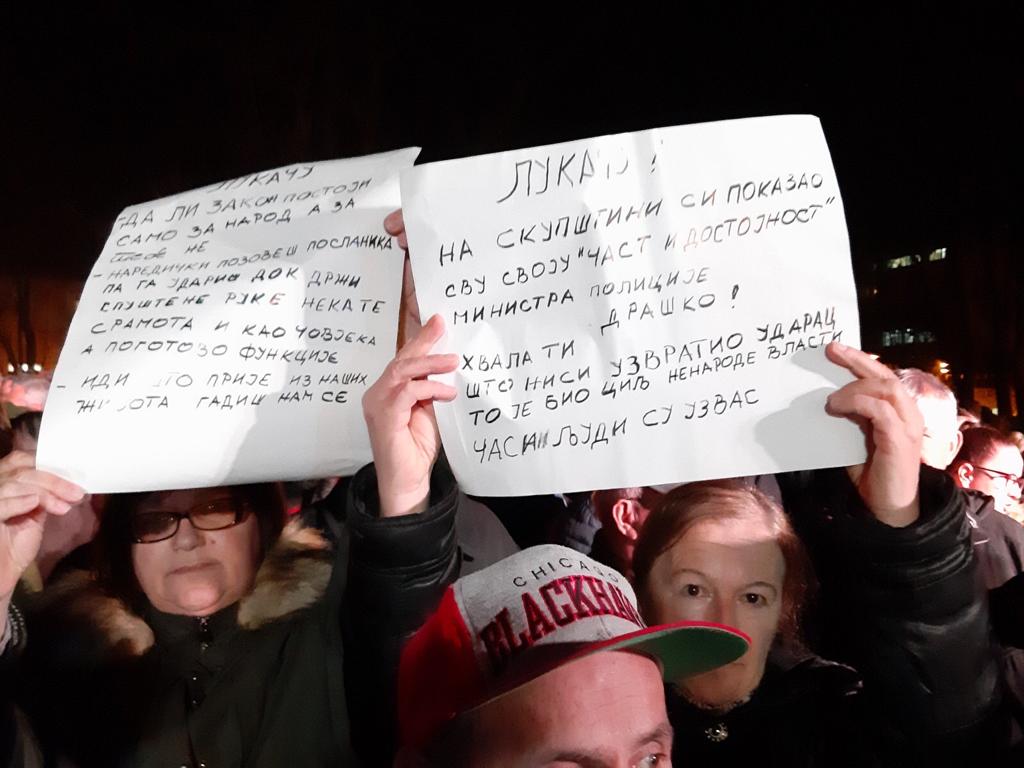 ЛУКАЧУ
-ДА ЛИ ЗАКОН ПОСТОЈИ
САМО ЗА НАРОД А ЗА
НЕ
- НАРЕДИЧКИ ПОЗОВЕШ ПОСЛАНИКА
ПА ГА УДАРИШ ДОК ДРЖИ
СПУШТЕНЕ РУКЕ НЕКА ТЕ
СРАМОТА И КАО ЧОВЈЕКА
А ПОГОТОВО ФУНКЦИЈЕ
- ИДИ ШТО ПРИЈЕ ИЗ НАШИХ
ЖИВОТА ГАДИШ НАМ СЕ
ЛУКАЧУ!
НА СКУПШТИНИ СИ ПОКАЗАО
СВУ СВОЈУ "ЧАСТ И ДОСТОЈНОСТ"
МИНИСТРА ПОЛИЦИЈЕ
ДРАШКО!
ХВАЛА ТИ
ШТО НИСИ УЗВРАТИО УДАРАЦ
ТО ЈЕ БИО ЦИЉ НЕНАРОДЕ ВЛАСТИ
ЧАСНИ ЉУДИ СУ УЗВАС
CHICAGO
BLACKHAW